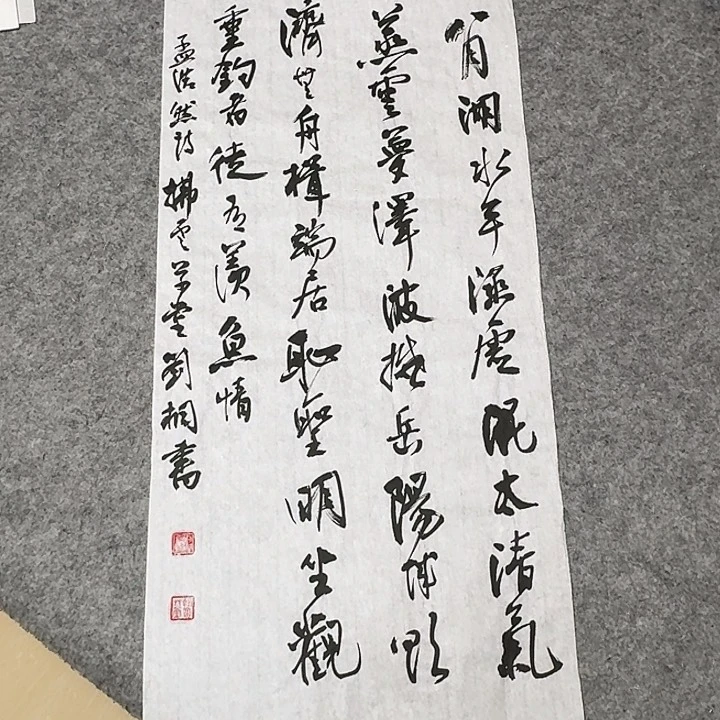 八月湖水平涵虛混太清氣
蒸雲夢澤波撼岳陽城欲
濟無舟楫端居恥聖明坐觀
垂釣者徒有羨魚情
孟浩然詩拂雲草堂劉桐書